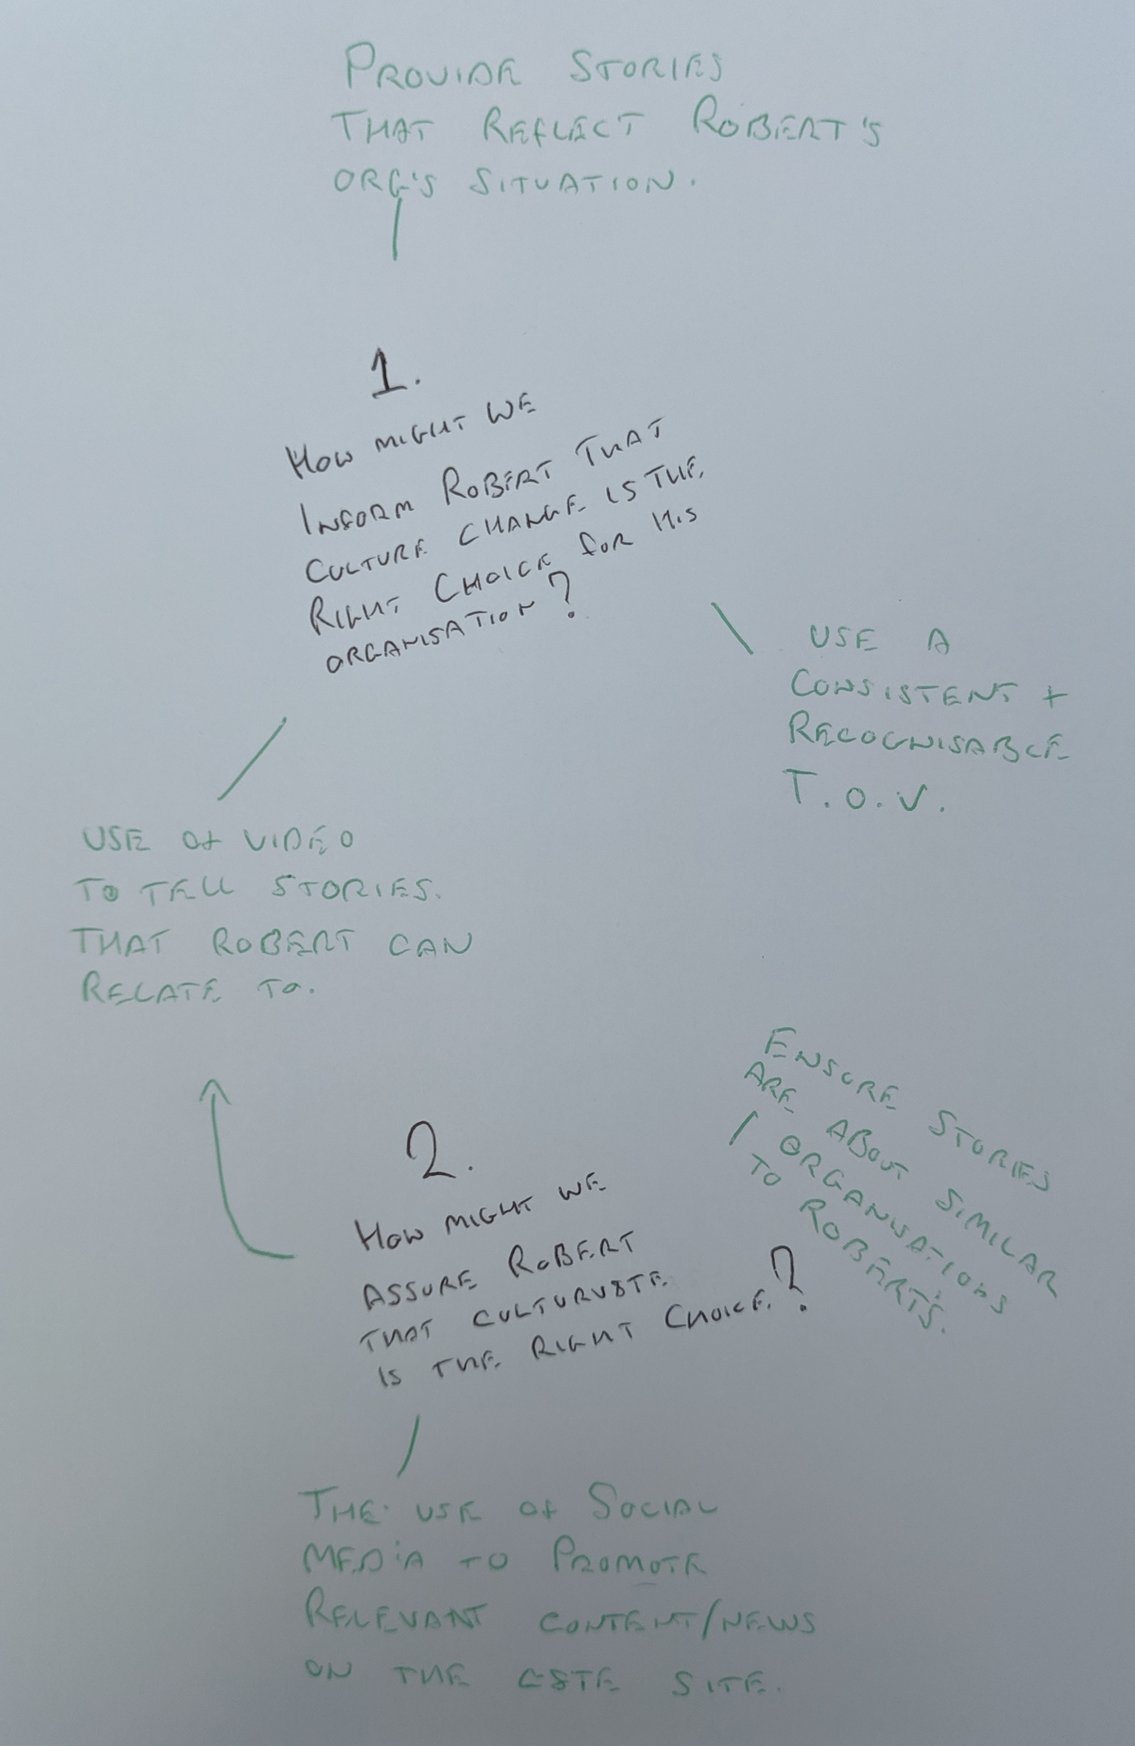 PROVIDE STORIES
THAT REFLECT ROBERT'S
ORG'S SITUATION.
1.
HOW MIGHT WE
INFORM ROBERT THAT
CULTURE CHANGE IS THE
RIGHT CHOICE FOR HIS
ORGANISATION?
USE A
CONSISTENT +
RECOGNISABLE
T.O.V.
USE OF VIDEO
TO TELL STORIES.
THAT ROBERT CAN
RELATE TO.
ENSURE STORIES
ARE ABOUT SIMILAR
ORGANISATIONS
TO ROBERT'S.
2.
HOW MIGHT WE
ASSURE ROBERT
THAT
IS THE RIGHT CHOICE.?
THE USE OF SOCIAL
MEDIA TO PROMOTE
RELEVANT CONTENT/NEWS
ON THE C8TE SITE.